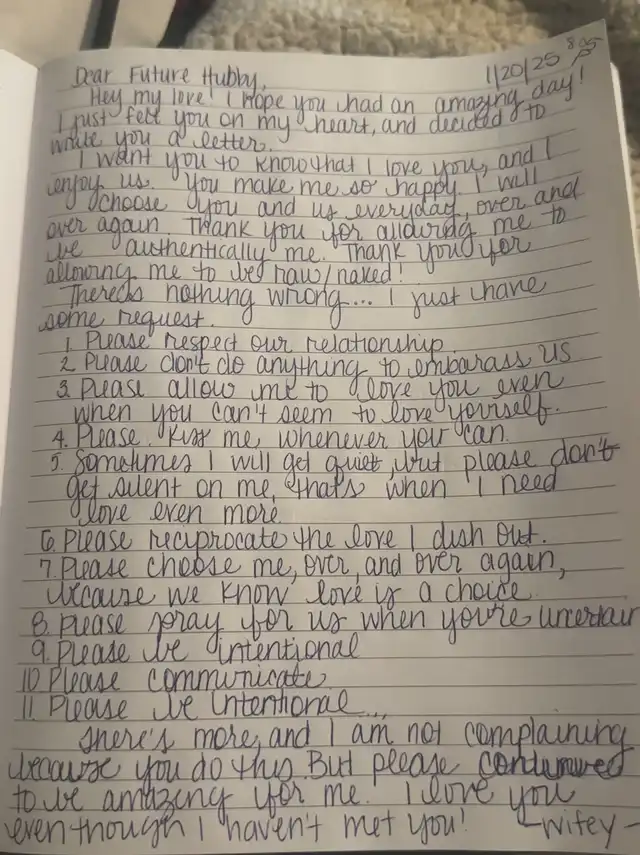 1/20/25 8:05
Dear Future Hubby,
Hey my love! I hope you had an amazing day!
I just felt you on my heart, and decided to
write you a letter.
I want you to know that I love you, and I
enjoy us. You make me so happy. I will
choose you and us everyday, over and
over again. Thank you for allowing me to
be authentically me. Thank you for
allowing me to be raw/naked!
There's nothing wrong... I just have
some request.
1. Please respect our relationship.
2. Please don't do anything to embarass us
3. Please allow me to love you even
when you can't seem to love yourself.
4. Please kiss me whenever you can.
5. Sometimes I will get quiet, but please don't
get silent on me, that's when I need
love even more.
6. Please reciprocate the love I dish out.
7. Please choose me, over, and over again,
because we know love is a choice.
8. Please pray for us when you're uncertain
9. Please be intentional
10. Please communicate
11. Please be intentional...
There's more, and I am not complaining
because you do this. But please
to be amazing for me. I love you
even though I haven't met you! -Wifey-